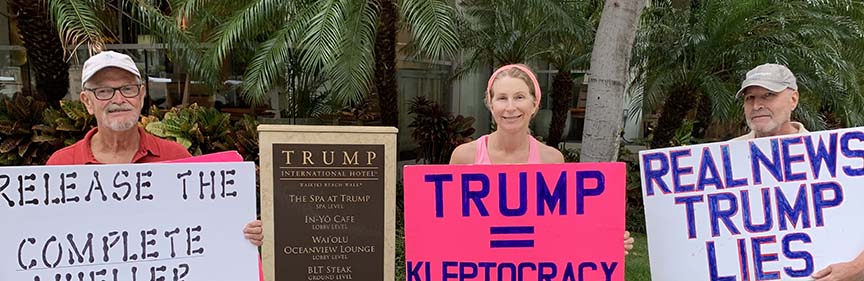 RELEASE THE
COMPLETE
MUELLER
TRUMP
INTERNATIONAL HOTEL
WAIKIKI BEACH WALK
THE SPA AT TRUMP
SPA LEVEL
IN-YŌ CAFE
LOBBY LEVEL
WAI'OLU
OCEANVIEW LOUNGE
LOBBY LEVEL
BLT STEAK
GROUND LEVEL
TRUMP
=
KLEPTOCRACY
REAL NEWS
TRUMP
LIES